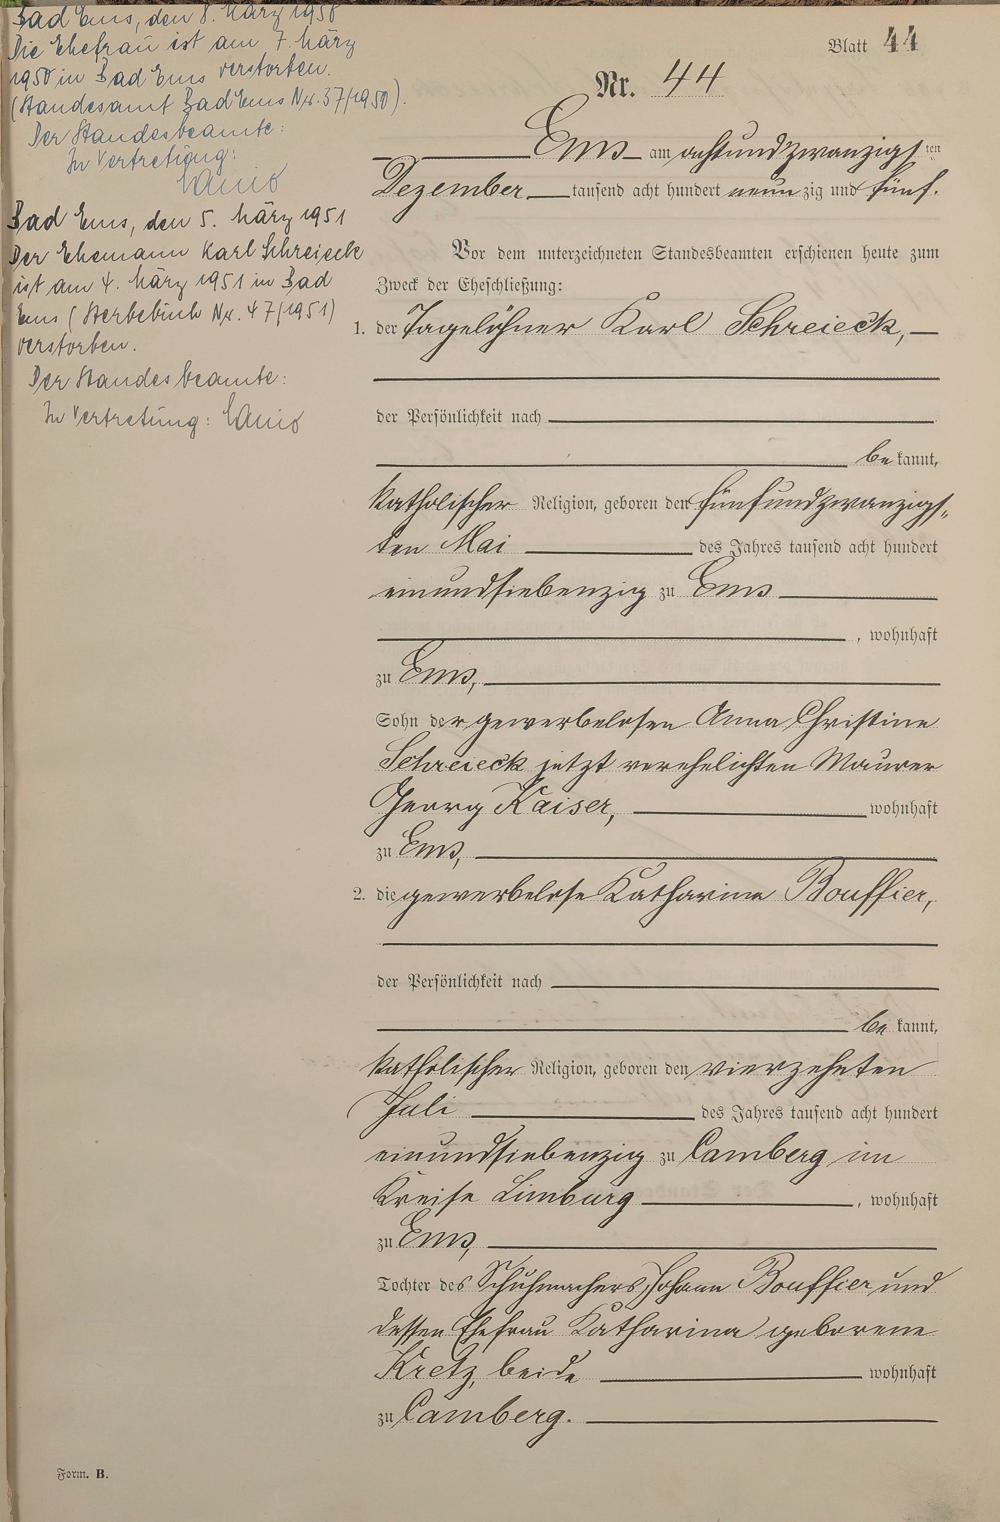 Bad Ems, den 8. März 1950
Die Ehefrau ist am 7. März
1950 in Bad Ems verstorben.
(Standesamt Bad Ems Nr. 37/1950).
Der Standesbeamte:
In Vertretung:
Bad Ems, den 5. März 1951
Der Ehemann Karl Schreieck
ist am 4. März 1951 in Bad
Ems (Sterbebuch Nr. 47/1951)
verstorben.
Der Standesbeamte:
In Vertretung:
Blatt 44
Nr. 44
Ems am achtundzwanzigsten
Dezember tausend acht hundert neunzig und fünf.
Vor dem unterzeichneten Standesbeamten erschienen heute zum
Zweck der Eheschließung:
1. der Tagelöhner Karl Schreieck,
der Persönlichkeit nach
bekannt,
katholischer Religion, geboren den fünfundzwanzigs-
ten Mai des Jahres tausend acht hundert
einundsiebenzig zu Ems
, wohnhaft
zu Ems,
Sohn der gewerbelosen Anna Christine
Schreieck jetzt verehelichten Maurer
Georg Kaiser, wohnhaft
zu Ems,
2. die gewerbelose Katharina Bouffier,
der Persönlichkeit nach
bekannt,
katholischer Religion, geboren den vierzehnten
Juli des Jahres tausend acht hundert
einundsiebenzig zu Camberg im
Kreise Limburg, wohnhaft
zu Ems,
Tochter des Schuhmachers Johann Bouffier und
dessen Ehefrau Katharina geborene
Kretz, beide wohnhaft
zu Camberg.
Form. B.